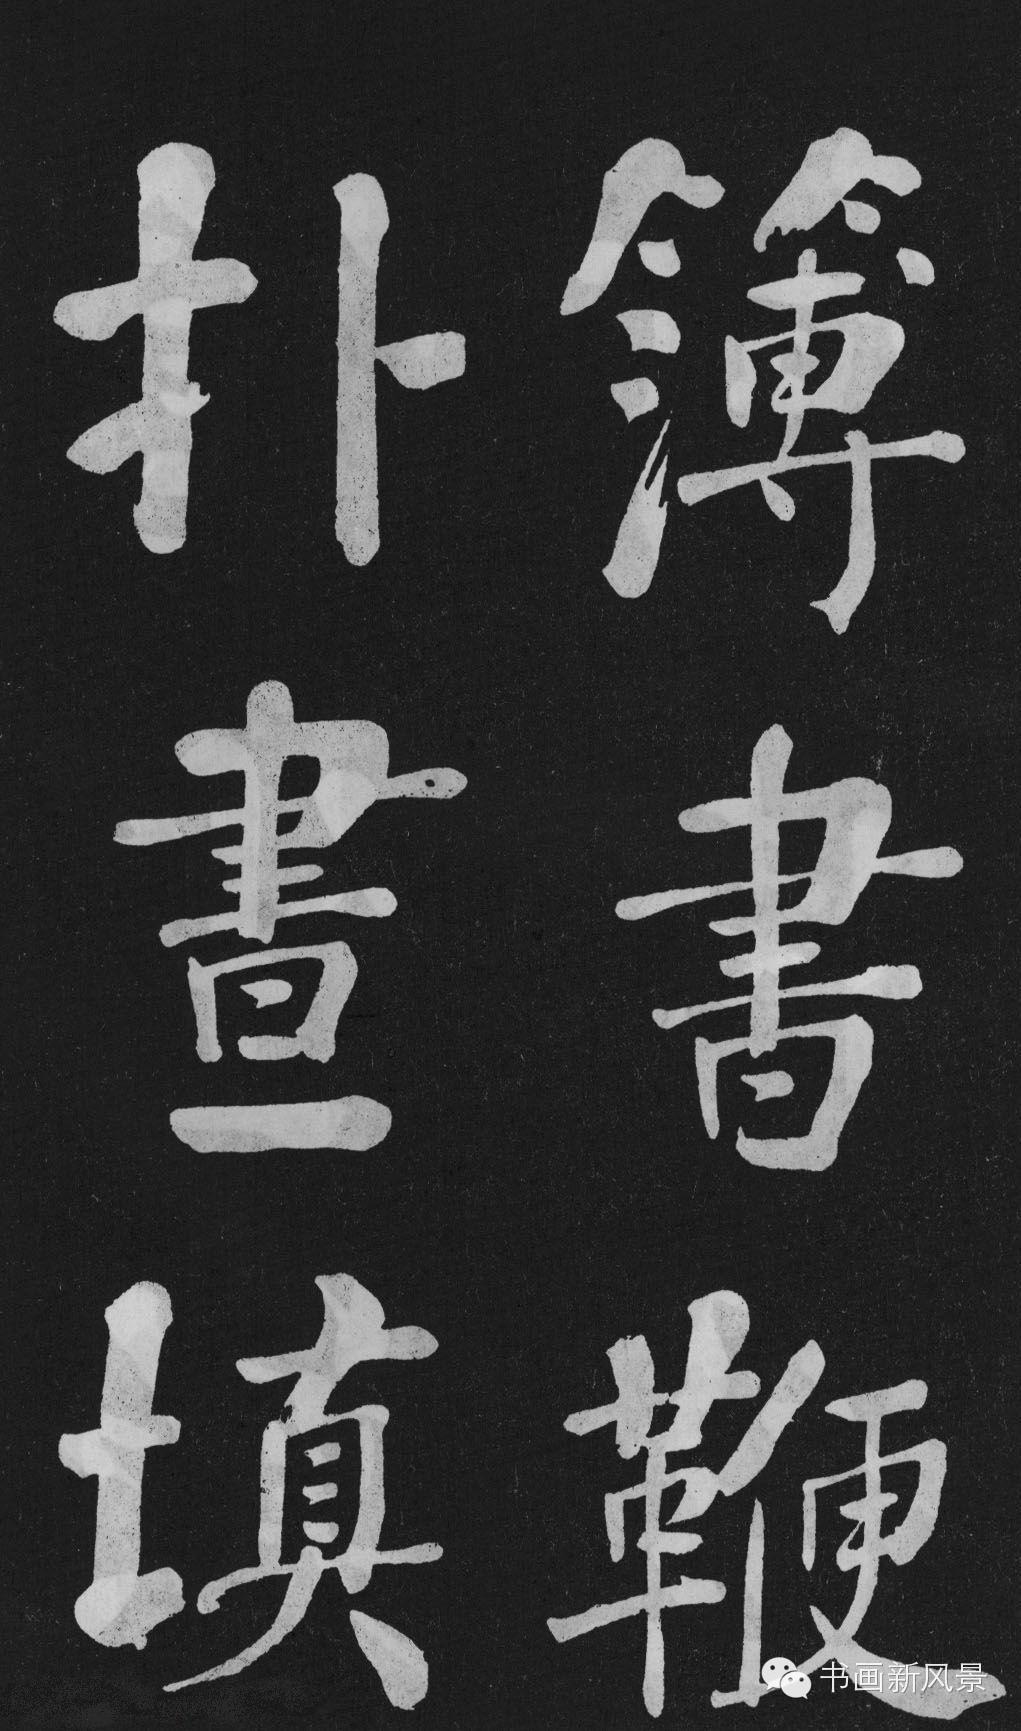 簿書鞭
扑晝填
书画新风景